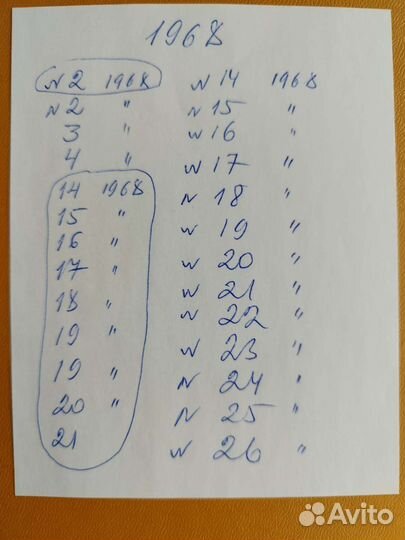 1968
N 2 1968
N 2 "
3 "
4 "
14 1968
15 "
16 "
17 "
18 "
19 "
19 "
20 "
21
N 14 1968
N 15 "
N 16 "
N 17 "
N 18 "
N 19 "
N 20 "
N 21 "
N 22 "
N 23 "
N 24 "
N 25 "
N 26 "
Avito